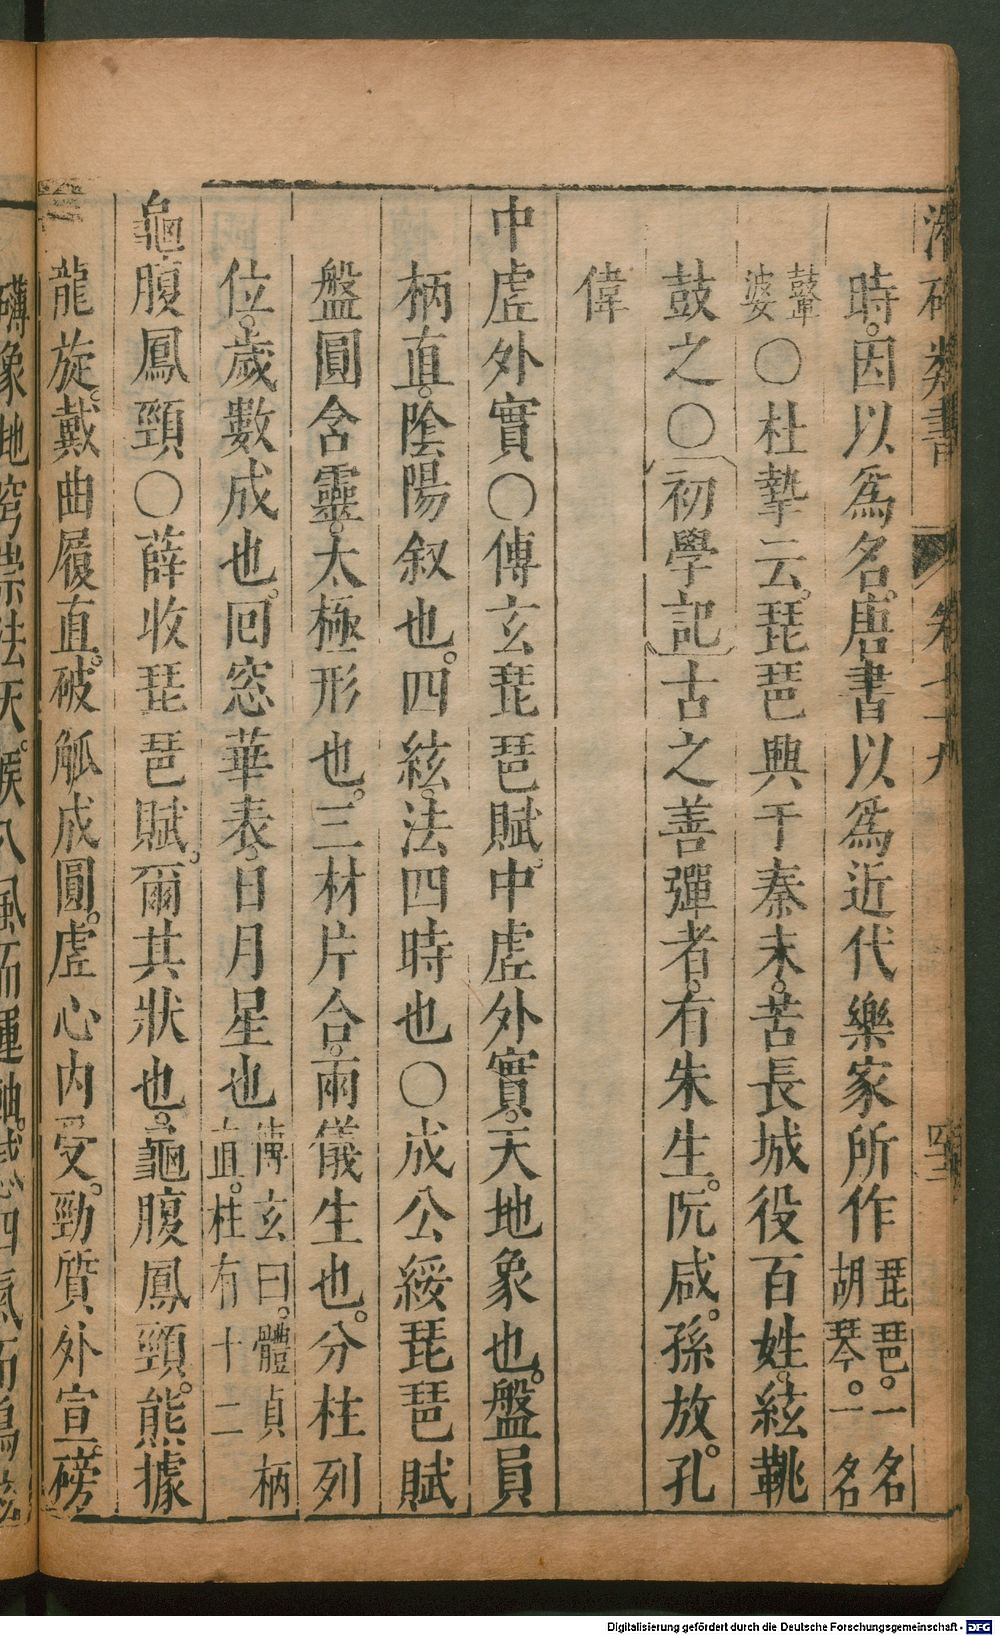 潛確類書　卷七十九　四十二
時。因以為名。唐書以為近代樂家所作琵琶。一名胡琴。一名
鼙婆〇杜摯云。琵琶興于秦末。苦長城役百姓。絃鼗
鼓之〇初學記古之善彈者。有朱生。阮咸。孫放。孔
偉
中虛外實〇傅玄琵琶賦。中虛外實。天地象也。盤員
柄直。陰陽叙也。四絃。法四時也〇成公綏琵琶賦
盤圓含靈。太極形也。三材片合。兩儀生也。分柱列
位。歲數成也。回窓華表。日月星也傅玄曰。體貞柄直。柱有十二
龜腹鳳頸〇薛收琵琶賦。爾其狀也。龜腹鳳頸。熊據
龍旋。戴曲履直。破觚成圓。虛心內受。勁質外宣。磅
礴象地。穹崇法天。候八風而運軸。感四氣而鳴絃
Digitalisierung gefördert durch die Deutsche Forschungsgemeinschaft - DFG